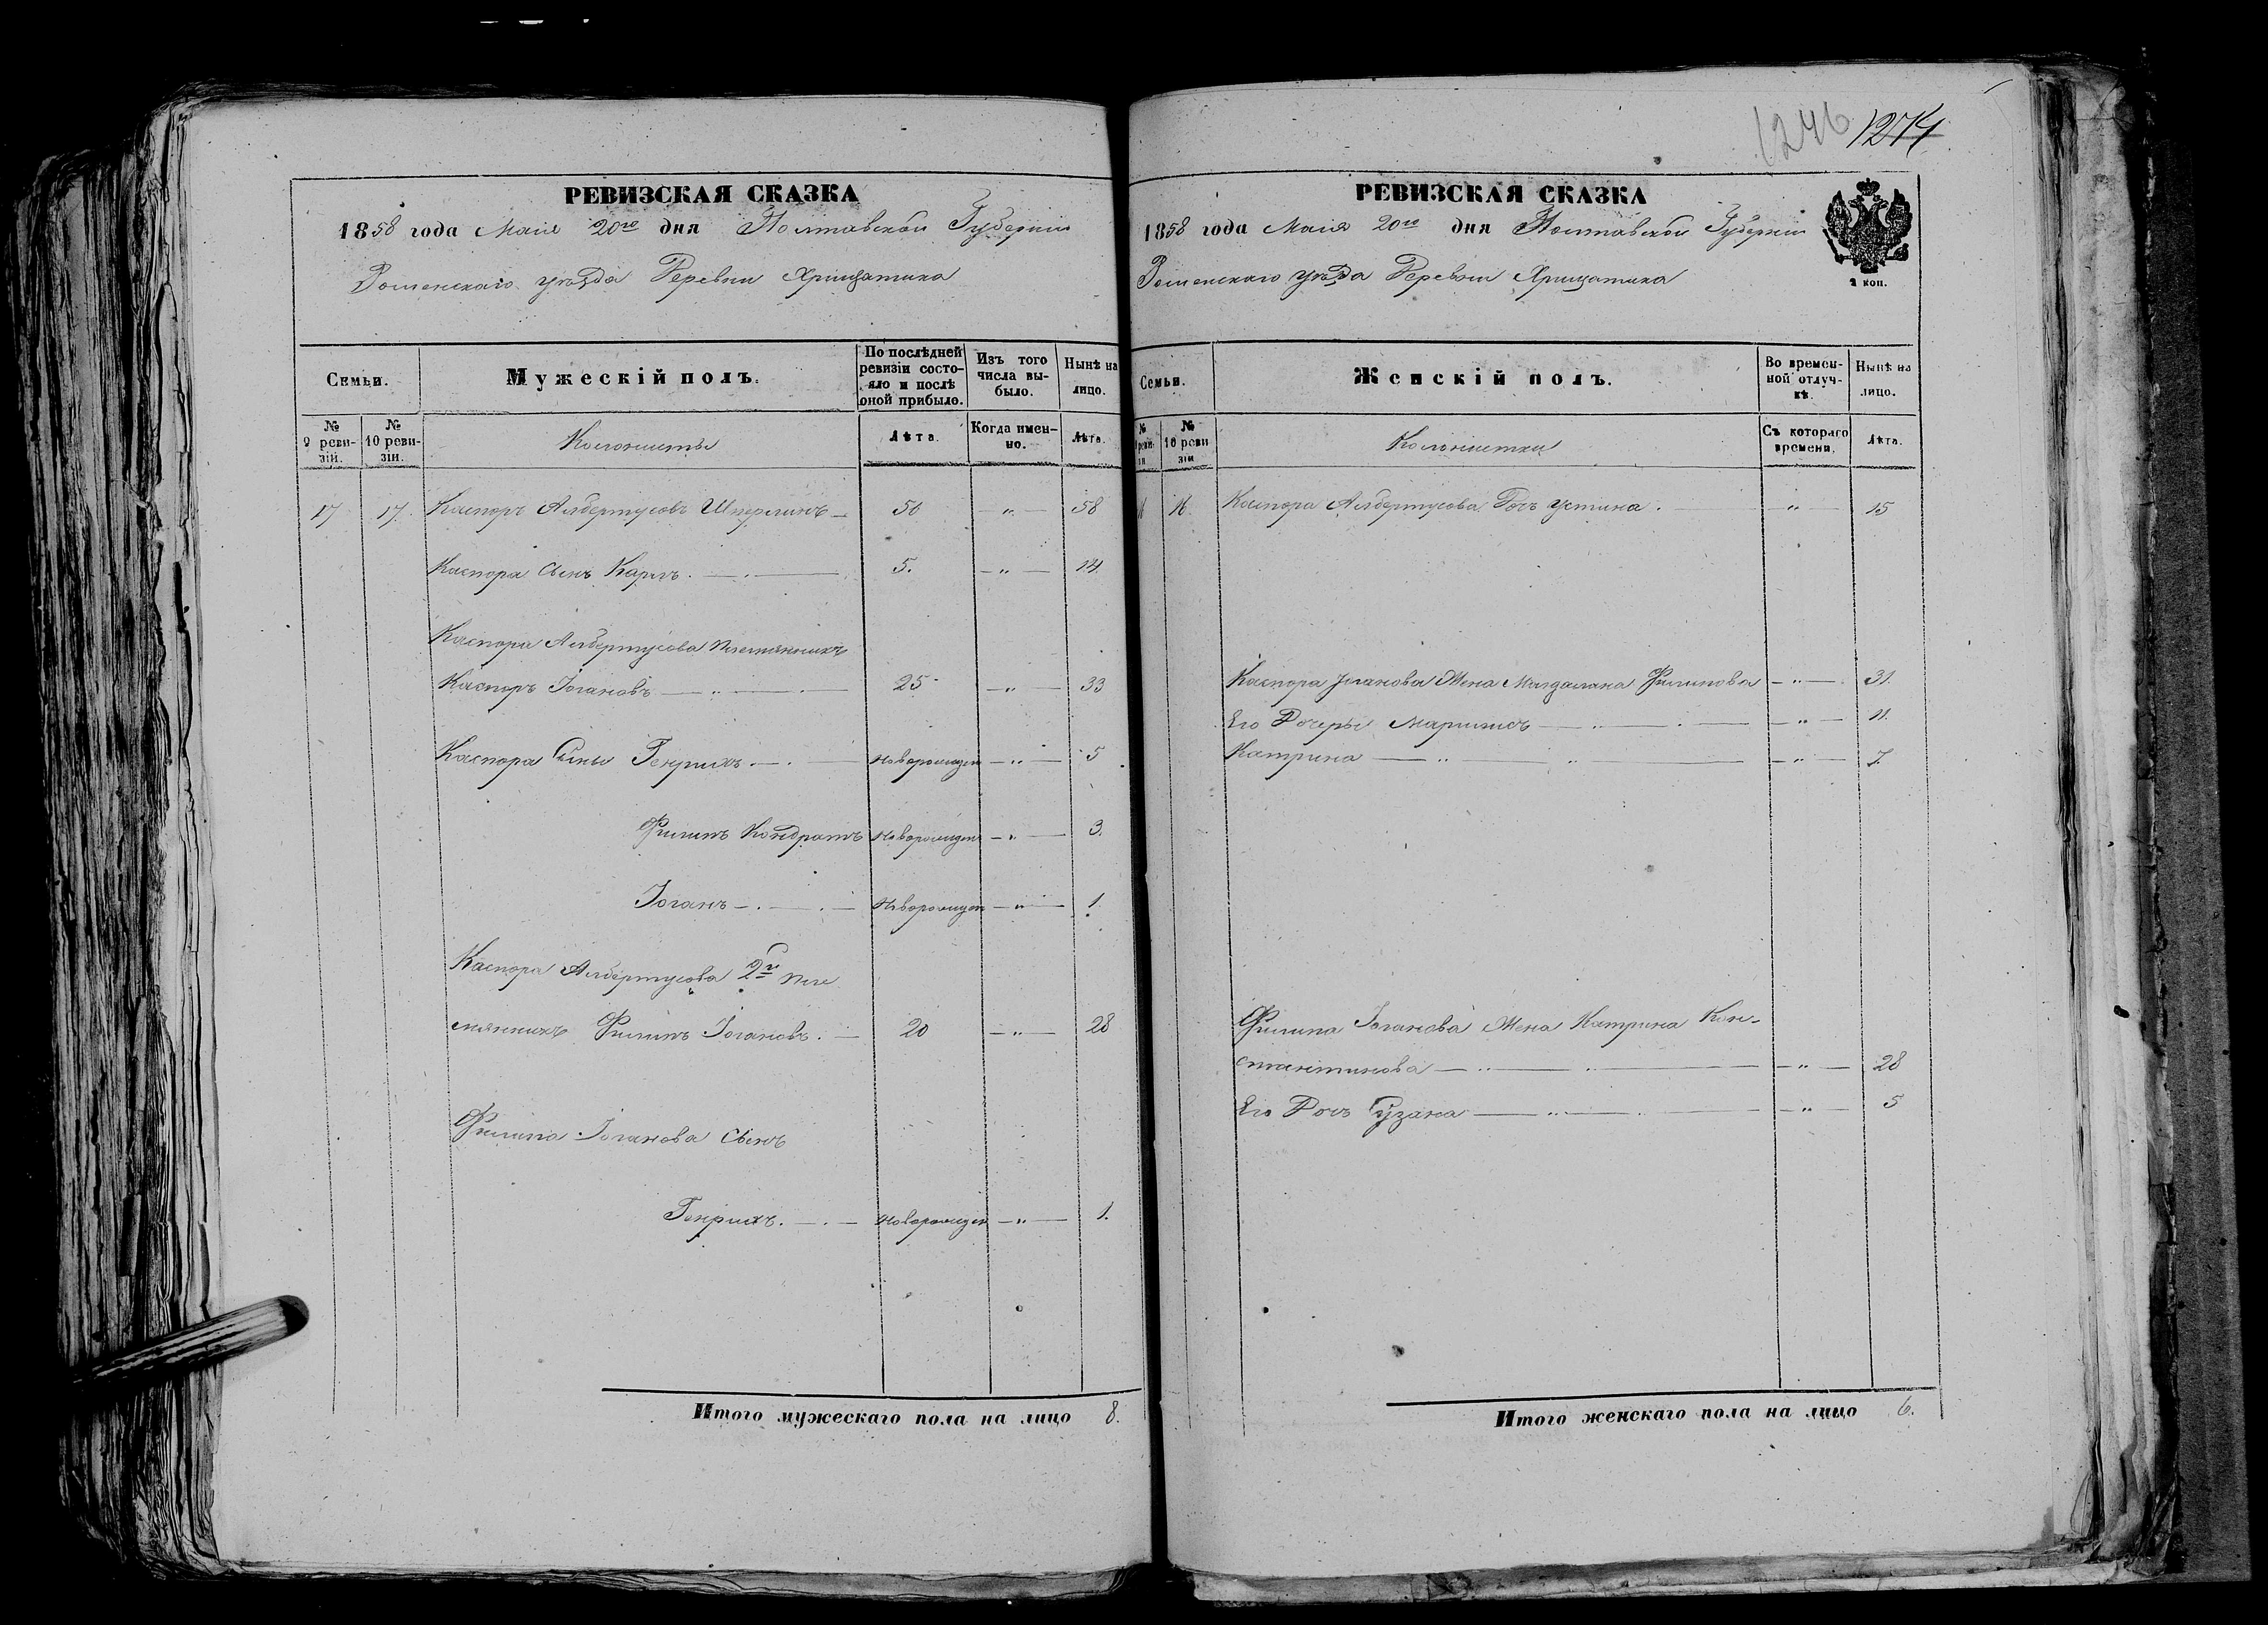 1246 1274
РЕВИЗСКАЯ СКАЗКА
1858 года Маія 20го дня Полтавской Губерніи
Роменскаго уѣзда Деревни Хрищатика
Семьи.
Мужескій полъ.
По послѣдней ревизіи состояло и послѣ оной прибыло.
Изъ того числа выбыло.
Нынѣ на лицо.
№ 9 ревизіи.
№ 10 ревизіи.
Колонисты
Лѣта.
Когда именно.
Лѣта.
17 17. Каспоръ Албертусовъ Шперлинъ 50 " 58
Каспора Сынъ Карлъ. 5. " 14.
Каспора Албертусова племянникъ
Каспоръ Іогановъ 25 " 33
Каспора Сыны Генрихъ. Новорожден " 5
Филипъ Кондратъ Новорожден " 3.
Іоганъ Новорожден " 1.
Каспора Албертусова 2й пле
мянникъ Филипъ Іогановъ. 20 " 28
Филипа Іоганова Сынъ
Генрихъ. Новорожден " 1.
Итого мужескаго пола на лицо 8.
РЕВИЗСКАЯ СКАЗКА
1858 года Маія 20го дня Полтавской Губерніи
Роменскаго уѣзда Деревни Хрищатика
2 коп.
Семьи.
Женскій полъ.
Во временной отлучкѣ.
Нынѣ на лицо.
№ 9 ревизіи
№ 10 ревизіи
Колонистки
Съ котораго времени.
Лѣта.
16 Каспора Албертусова Дочь Устина. " 15
Каспора Іоганова Жена Магдалана Филипова " 31.
Его Дочеры " 11.
Катрина " 7.
Филипа Іоганова Жена Катрина Кон-
стантинова " 28
Его Дочь Сузана " 5
Итого женскаго пола на лицо 6.